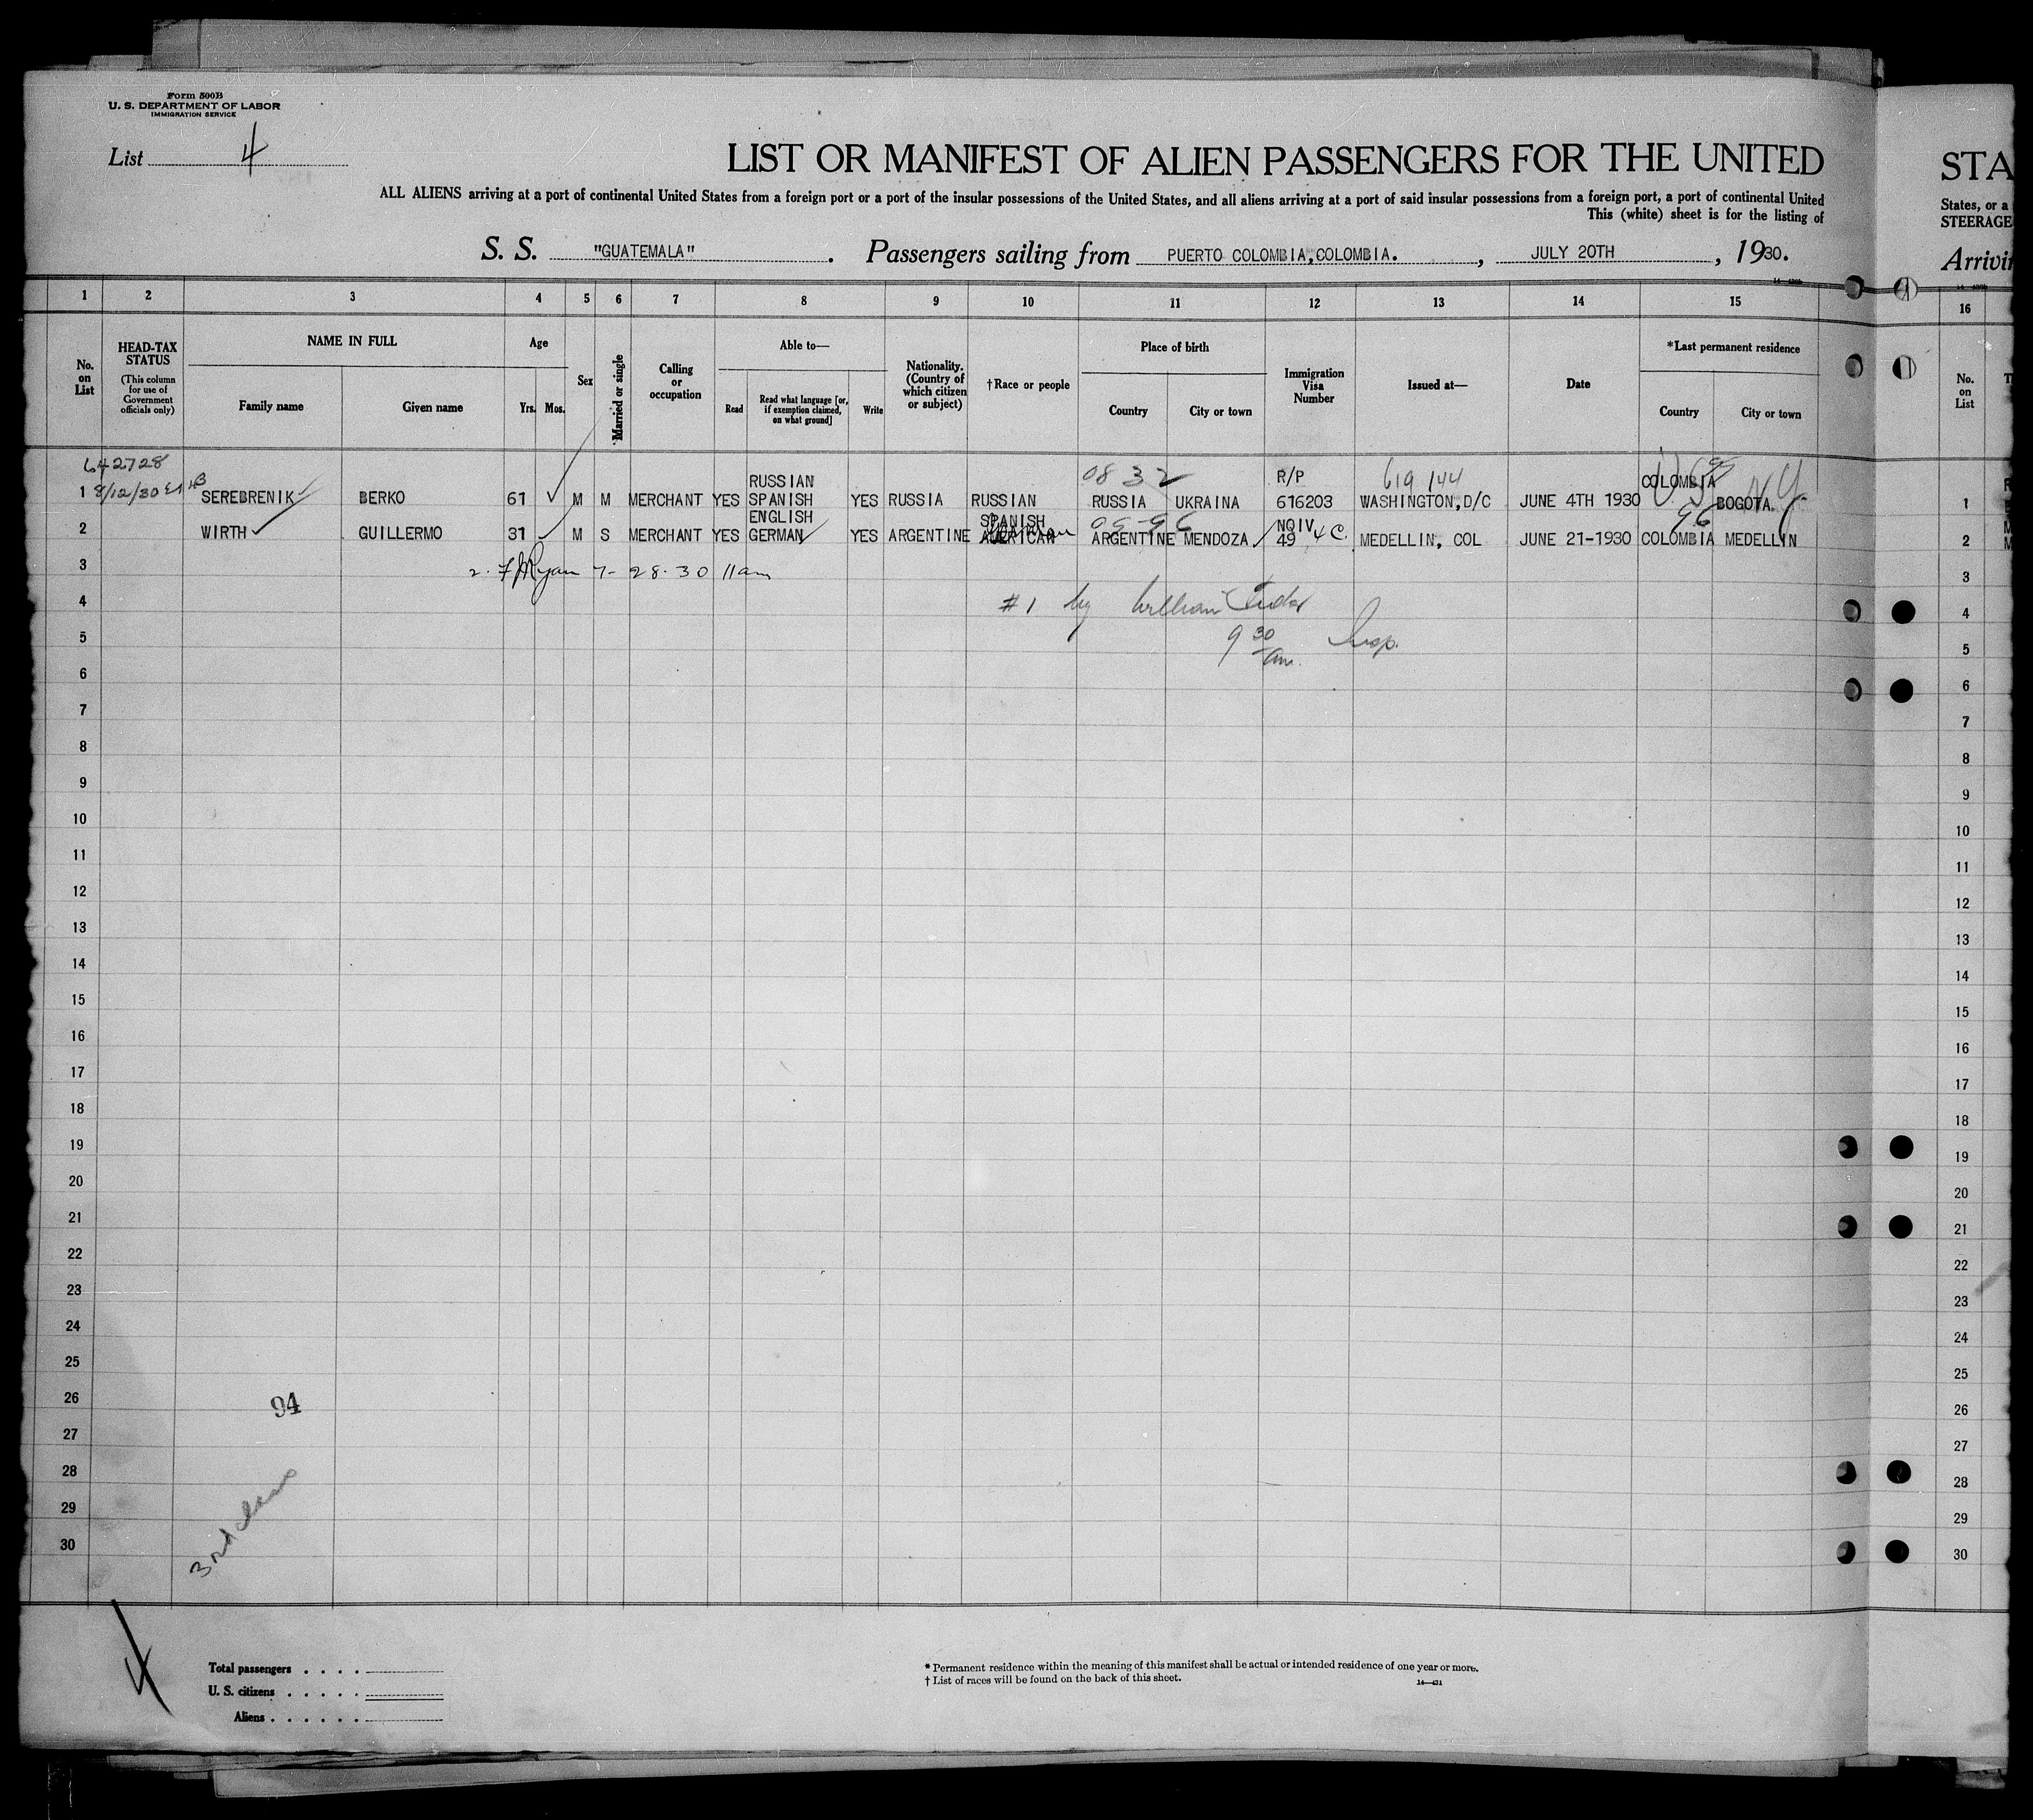 Form 500B
U. S. DEPARTMENT OF LABOR
IMMIGRATION SERVICE
List 4
LIST OR MANIFEST OF ALIEN PASSENGERS FOR THE UNITED
STA
ALL ALIENS arriving at a port of continental United States from a foreign port or a port of the insular possessions of the United States, and all aliens arriving at a port of said insular possessions from a foreign port, a port of continental United
States, or a
This (white) sheet is for the listing of
STEERAGE
S. S. "GUATEMALA". Passengers sailing from PUERTO COLOMBIA, COLOMBIA., JULY 20TH, 1930.
Arrivin
1 2 3 4 5 6 7 8 9 10 11 12 13 14 15
16
No. on List
HEAD-TAX STATUS
(This column for use of Government officials only)
NAME IN FULL
Family name
Given name
Age
Yrs. Mos.
Sex
Married or single
Calling or occupation
Able to—
Read
Read what language [or, if exemption claimed, on what ground]
Write
Nationality. (Country of which citizen or subject)
†Race or people
Place of birth
Country
City or town
Immigration Visa Number
Issued at—
Date
*Last permanent residence
Country
City or town
No. on List
642728
8/12/30
0832
R/P
619 144
COLOMBIA
U.S. NY
RUSSIAN
1 SEREBRENIK BERKO 61 M M MERCHANT YES SPANISH YES RUSSIA RUSSIAN RUSSIA UKRAINA 616203 WASHINGTON,D/C JUNE 4TH 1930 BOGOTA
1
ENGLISH
SPANISH
NQIV
96
2 WIRTH GUILLERMO 31 M S MERCHANT YES GERMAN YES ARGENTINE AMERICAN ARGENTINE MENDOZA 49 4C. MEDELLIN, COL JUNE 21-1930 COLOMBIA MEDELLIN
2
3 2. Ryan 7-28-30 11am
3
4 #1 by William
4
5 9 30 am. Insp.
5
6
6
7
7
8
8
9
9
10
10
11
11
12
12
13
13
14
14
15
15
16
16
17
17
18
18
19
19
20
20
21
21
22
22
23
23
24
24
25
25
26
26
94
27
27
28
28
29
29
30
30
3rd class
4
Total passengers
U. S. citizens
Aliens
* Permanent residence within the meaning of this manifest shall be actual or intended residence of one year or more.
† List of races will be found on the back of this sheet.
14—431